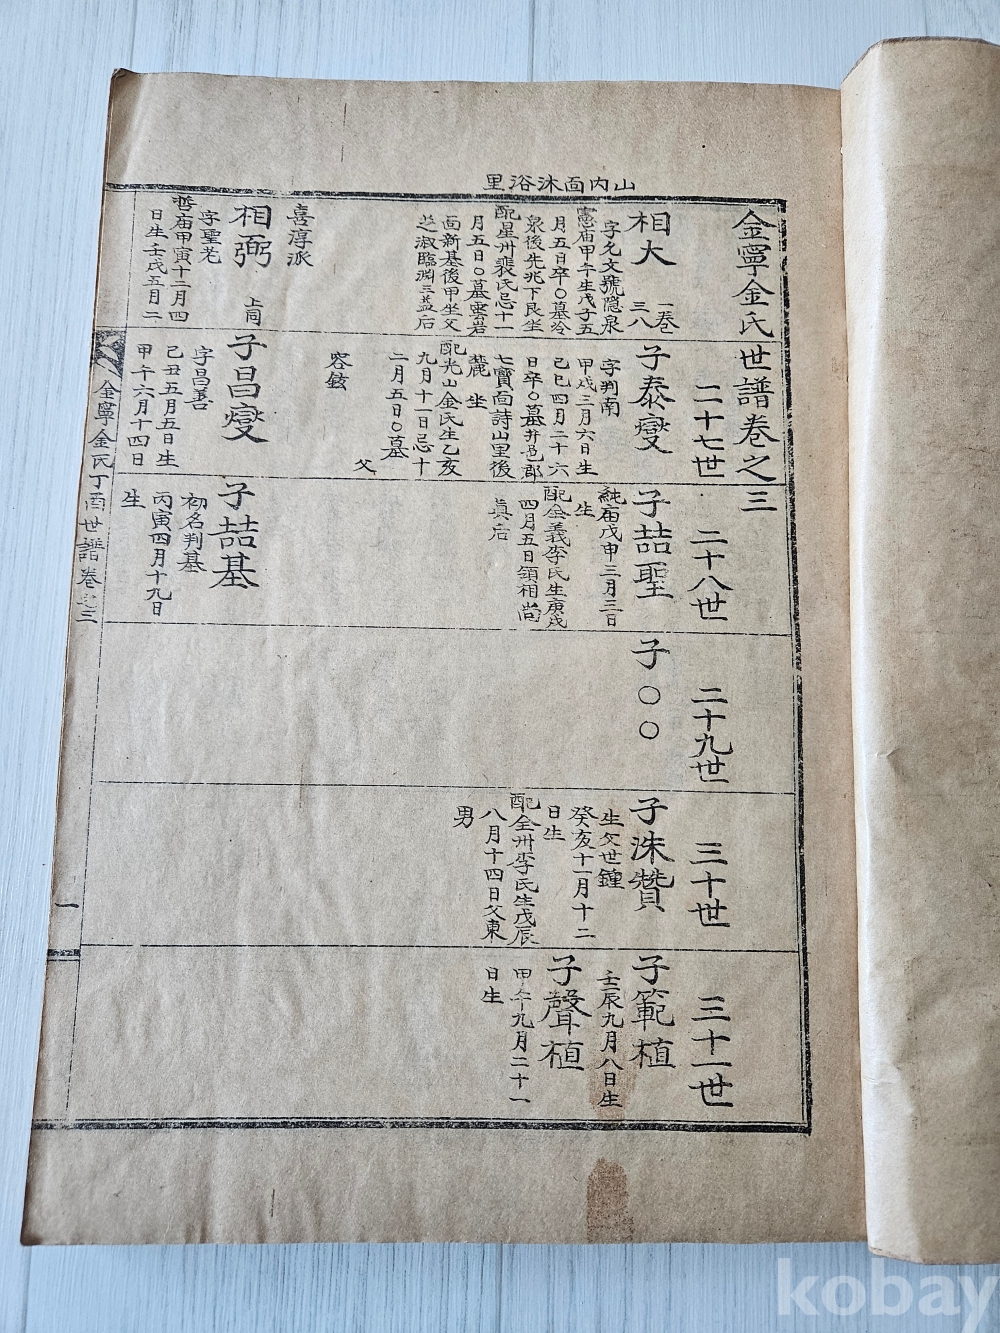 里浴沐面內山
金寧金氏世譜卷之三
二十七世
二十八世
二十九世
三十世
三十一世
相大
一卷
三八
字允文號隱泉
憲庙甲午生戊子五
月五日卒〇墓冷
泉後先兆下艮坐
配星州裵氏忌十一
月五日〇墓雲岩
面新基後甲坐父
淑臨淵三益后
喜淳派
相弼
上同
字聖老
哲庙甲寅十二月四
日生壬戌五月二
子泰燮
字判南
甲戌三月六日生
己巳四月二十六
日卒〇墓井邑郡
七寶面詩山里後
麓 坐
配光山金氏生乙亥
九月十一日忌十
二月五日〇墓
父
容鉉
子昌燮
字昌善
己丑五月五日生
甲午六月十四日
子喆聖
純庙戊申三月三日
生
配全義李氏生庚戌
四月五日領相尚
眞后
子喆基
初名判基
丙寅四月十九日
生
子〇〇
子洙贊
生父世鍾
癸亥十一月十二
日生
配全州李氏生戊辰
八月十四日父東
男
子範植
壬辰九月八日生
子聲植
甲午九月二十一
日生
金寧金氏丁酉世譜卷之三
一
kobay